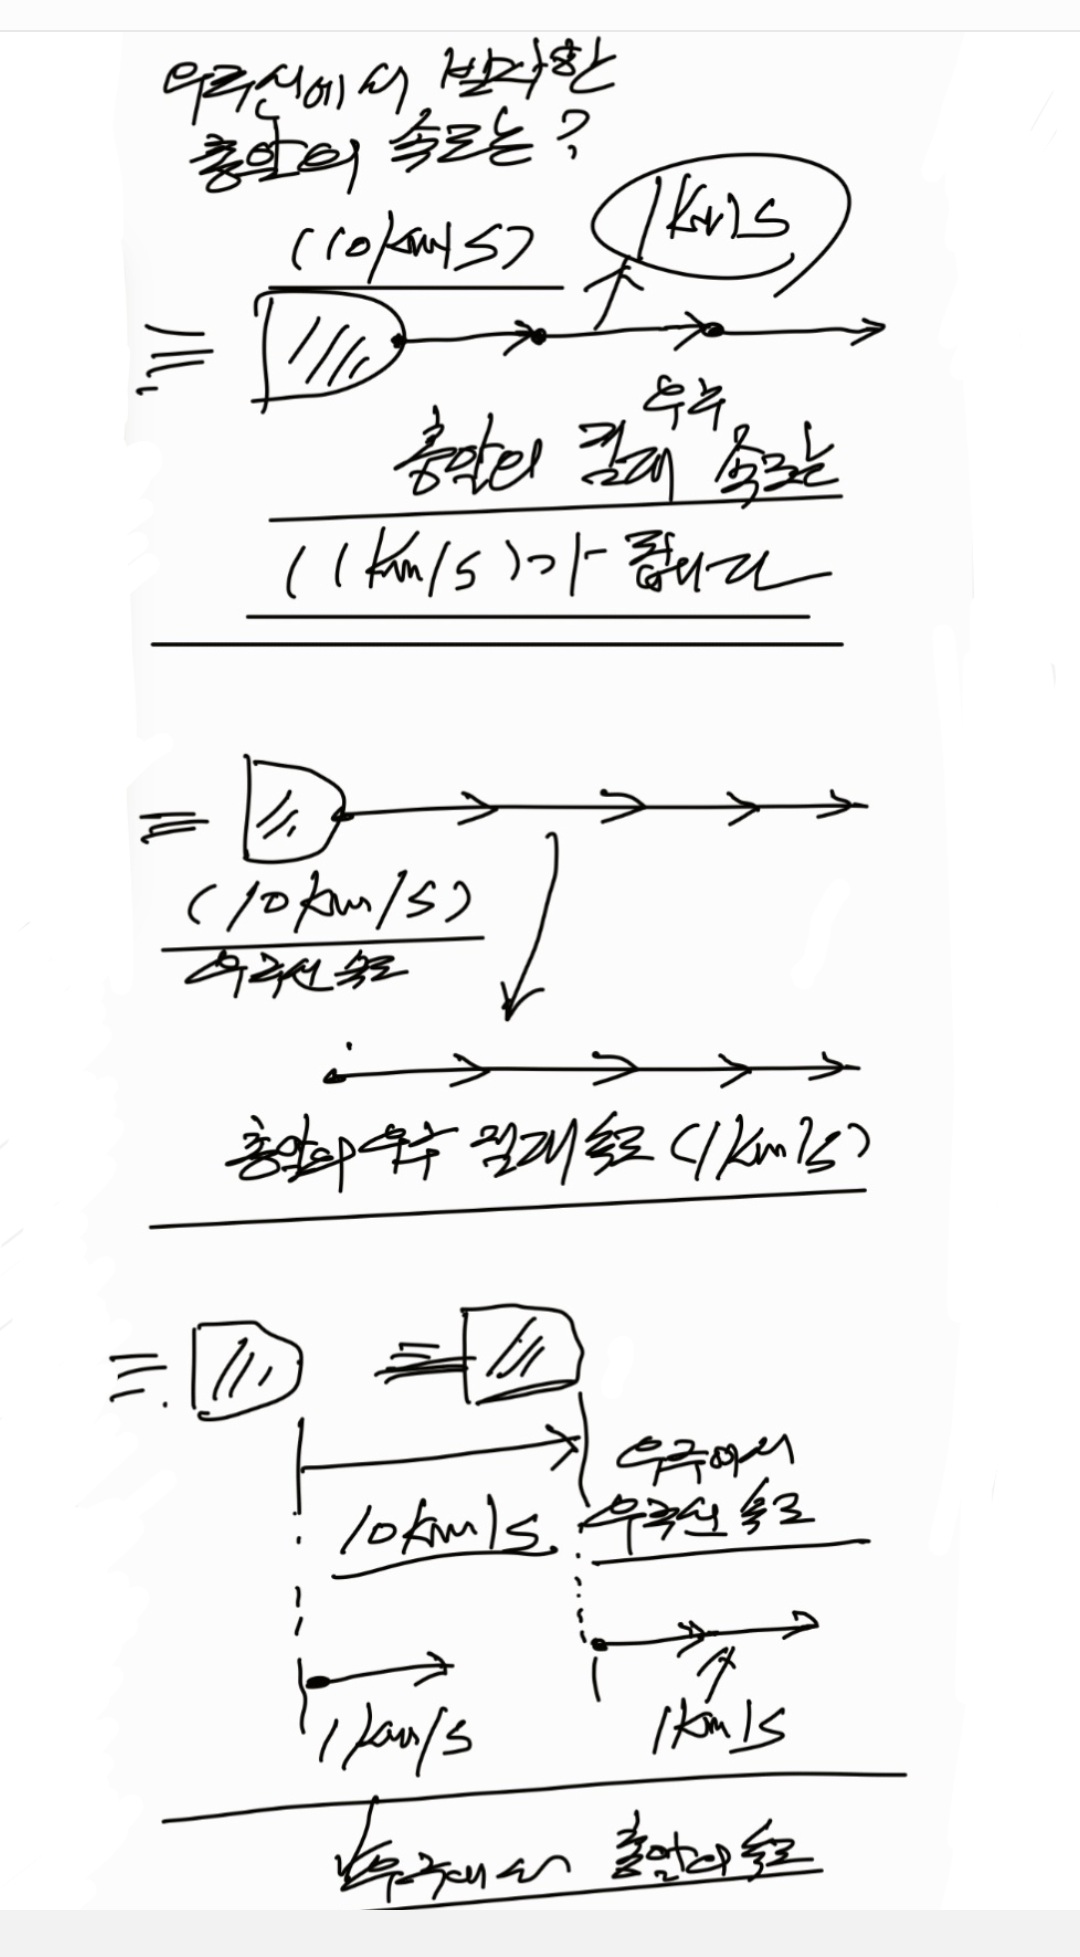 우주선에서 발사한
총알의 속도는?
(10km/s)
1km/s
우주
총알의 절대 속도는
(1km/s)가 됩니다
(10km/s)
우주선 속도
총알의 우주 절대속도 (1km/s)
우주에서
10km/s 우주선 속도
1km/s
1km/s
우주에서 총알의 속도